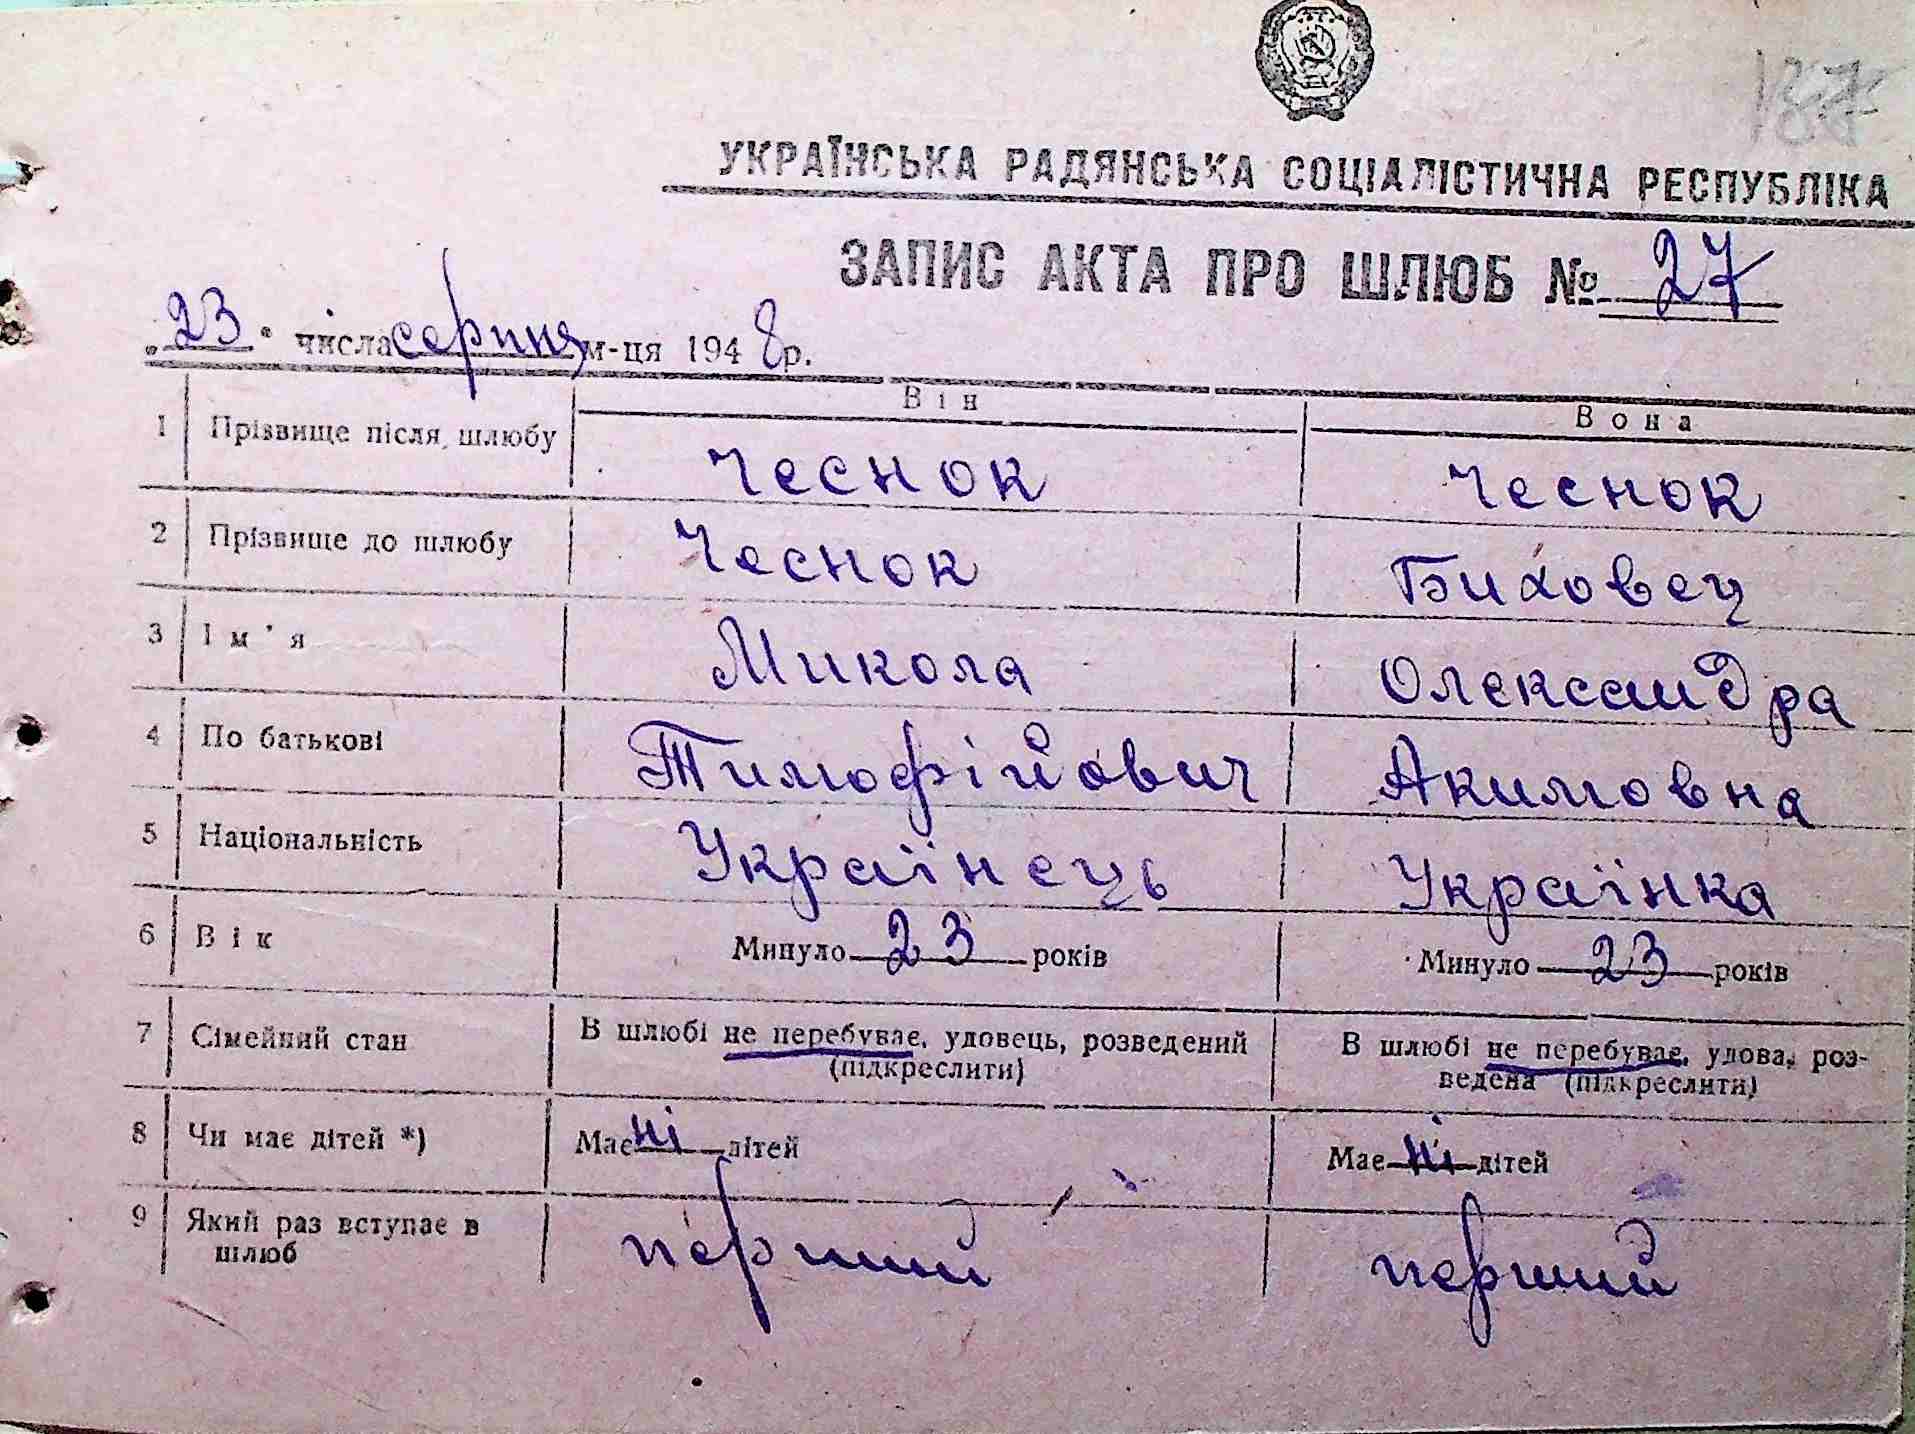 УКРАЇНСЬКА РАДЯНСЬКА СОЦІАЛІСТИЧНА РЕСПУБЛІКА
ЗАПИС АКТА ПРО ШЛЮБ № 27
„23" числа серпня м-ця 1948р.
Він Вона
1 Прізвище після шлюбу Чеснок Чеснок
2 Прізвище до шлюбу Чеснок Биховец
3 Ім'я Микола Олександра
4 По батькові Тимофійович Акимовна
5 Національність Українець Українка
6 Вік Минуло 23 років Минуло 23 років
7 Сімейний стан В шлюбі не перебуває, удовець, розведений В шлюбі не перебуває, удова, роз-
(підкреслити) ведена (підкреслити)
8 Чи має дітей *) Має ні дітей Має ні дітей
9 Який раз вступає в
шлюб перший перший